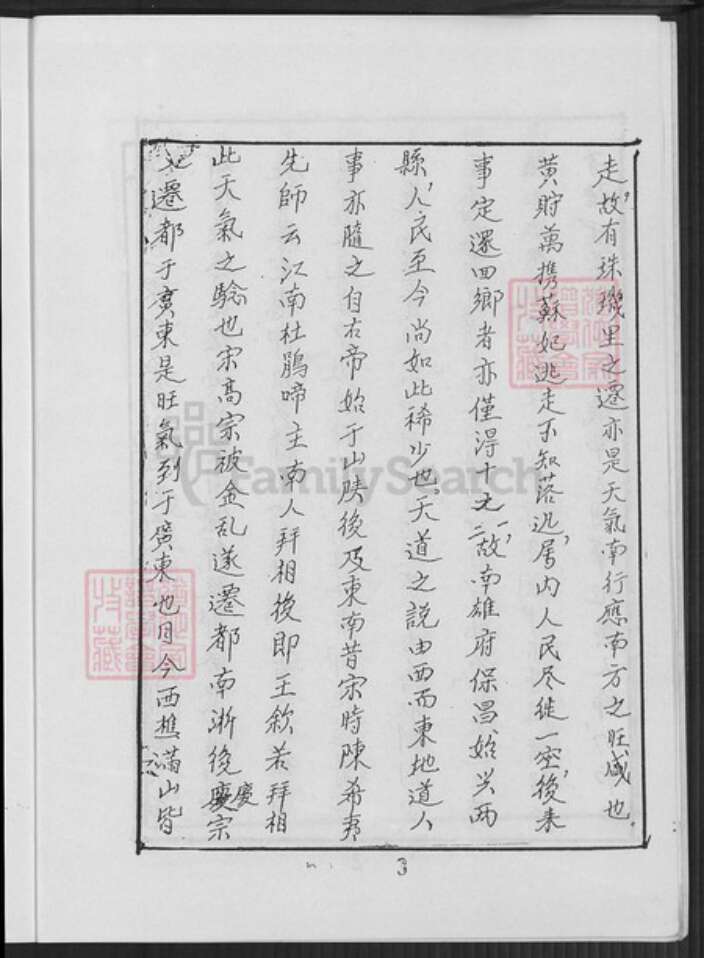 走,故有珠璣里之遷亦是天氣南行應南方之旺盛也.
黄貯萬携蘇妃逃走不知落迯,属内人民尽徙一空,後来
事定還囬鄉者亦僅淂十之一二,故南雄府保昌始兴两
縣,人民至今尚如此稀少也.天道之説由西而東地道人
事亦隨之自古帝始于山陕後及東南昔宗時陳希夷
先師云江南杜鵑啼主南人拜相後即王欽若拜相
此天氣之騐也宋髙宗被金乱遂遷都南淅後慶宗
又遷都于廣東是旺氣到于廣東也目今西樵满山皆
3
FamilySearch